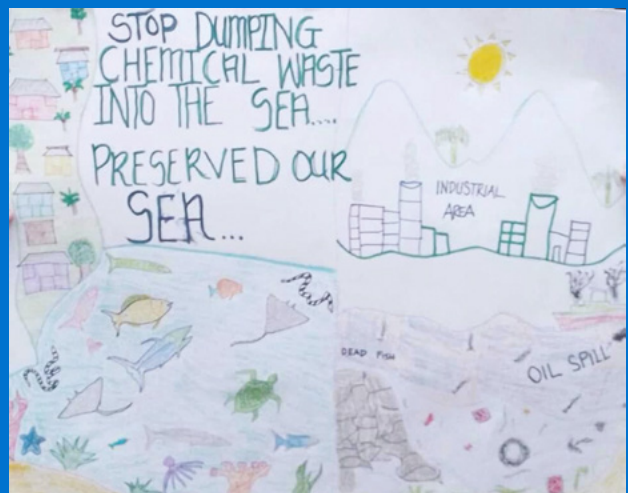 STOP DUMPING
CHEMICAL WASTE
INTO THE SEA....
PRESERVED OUR
SEA...
INDUSTRIAL
AREA
DEAD FISH
OIL SPILL